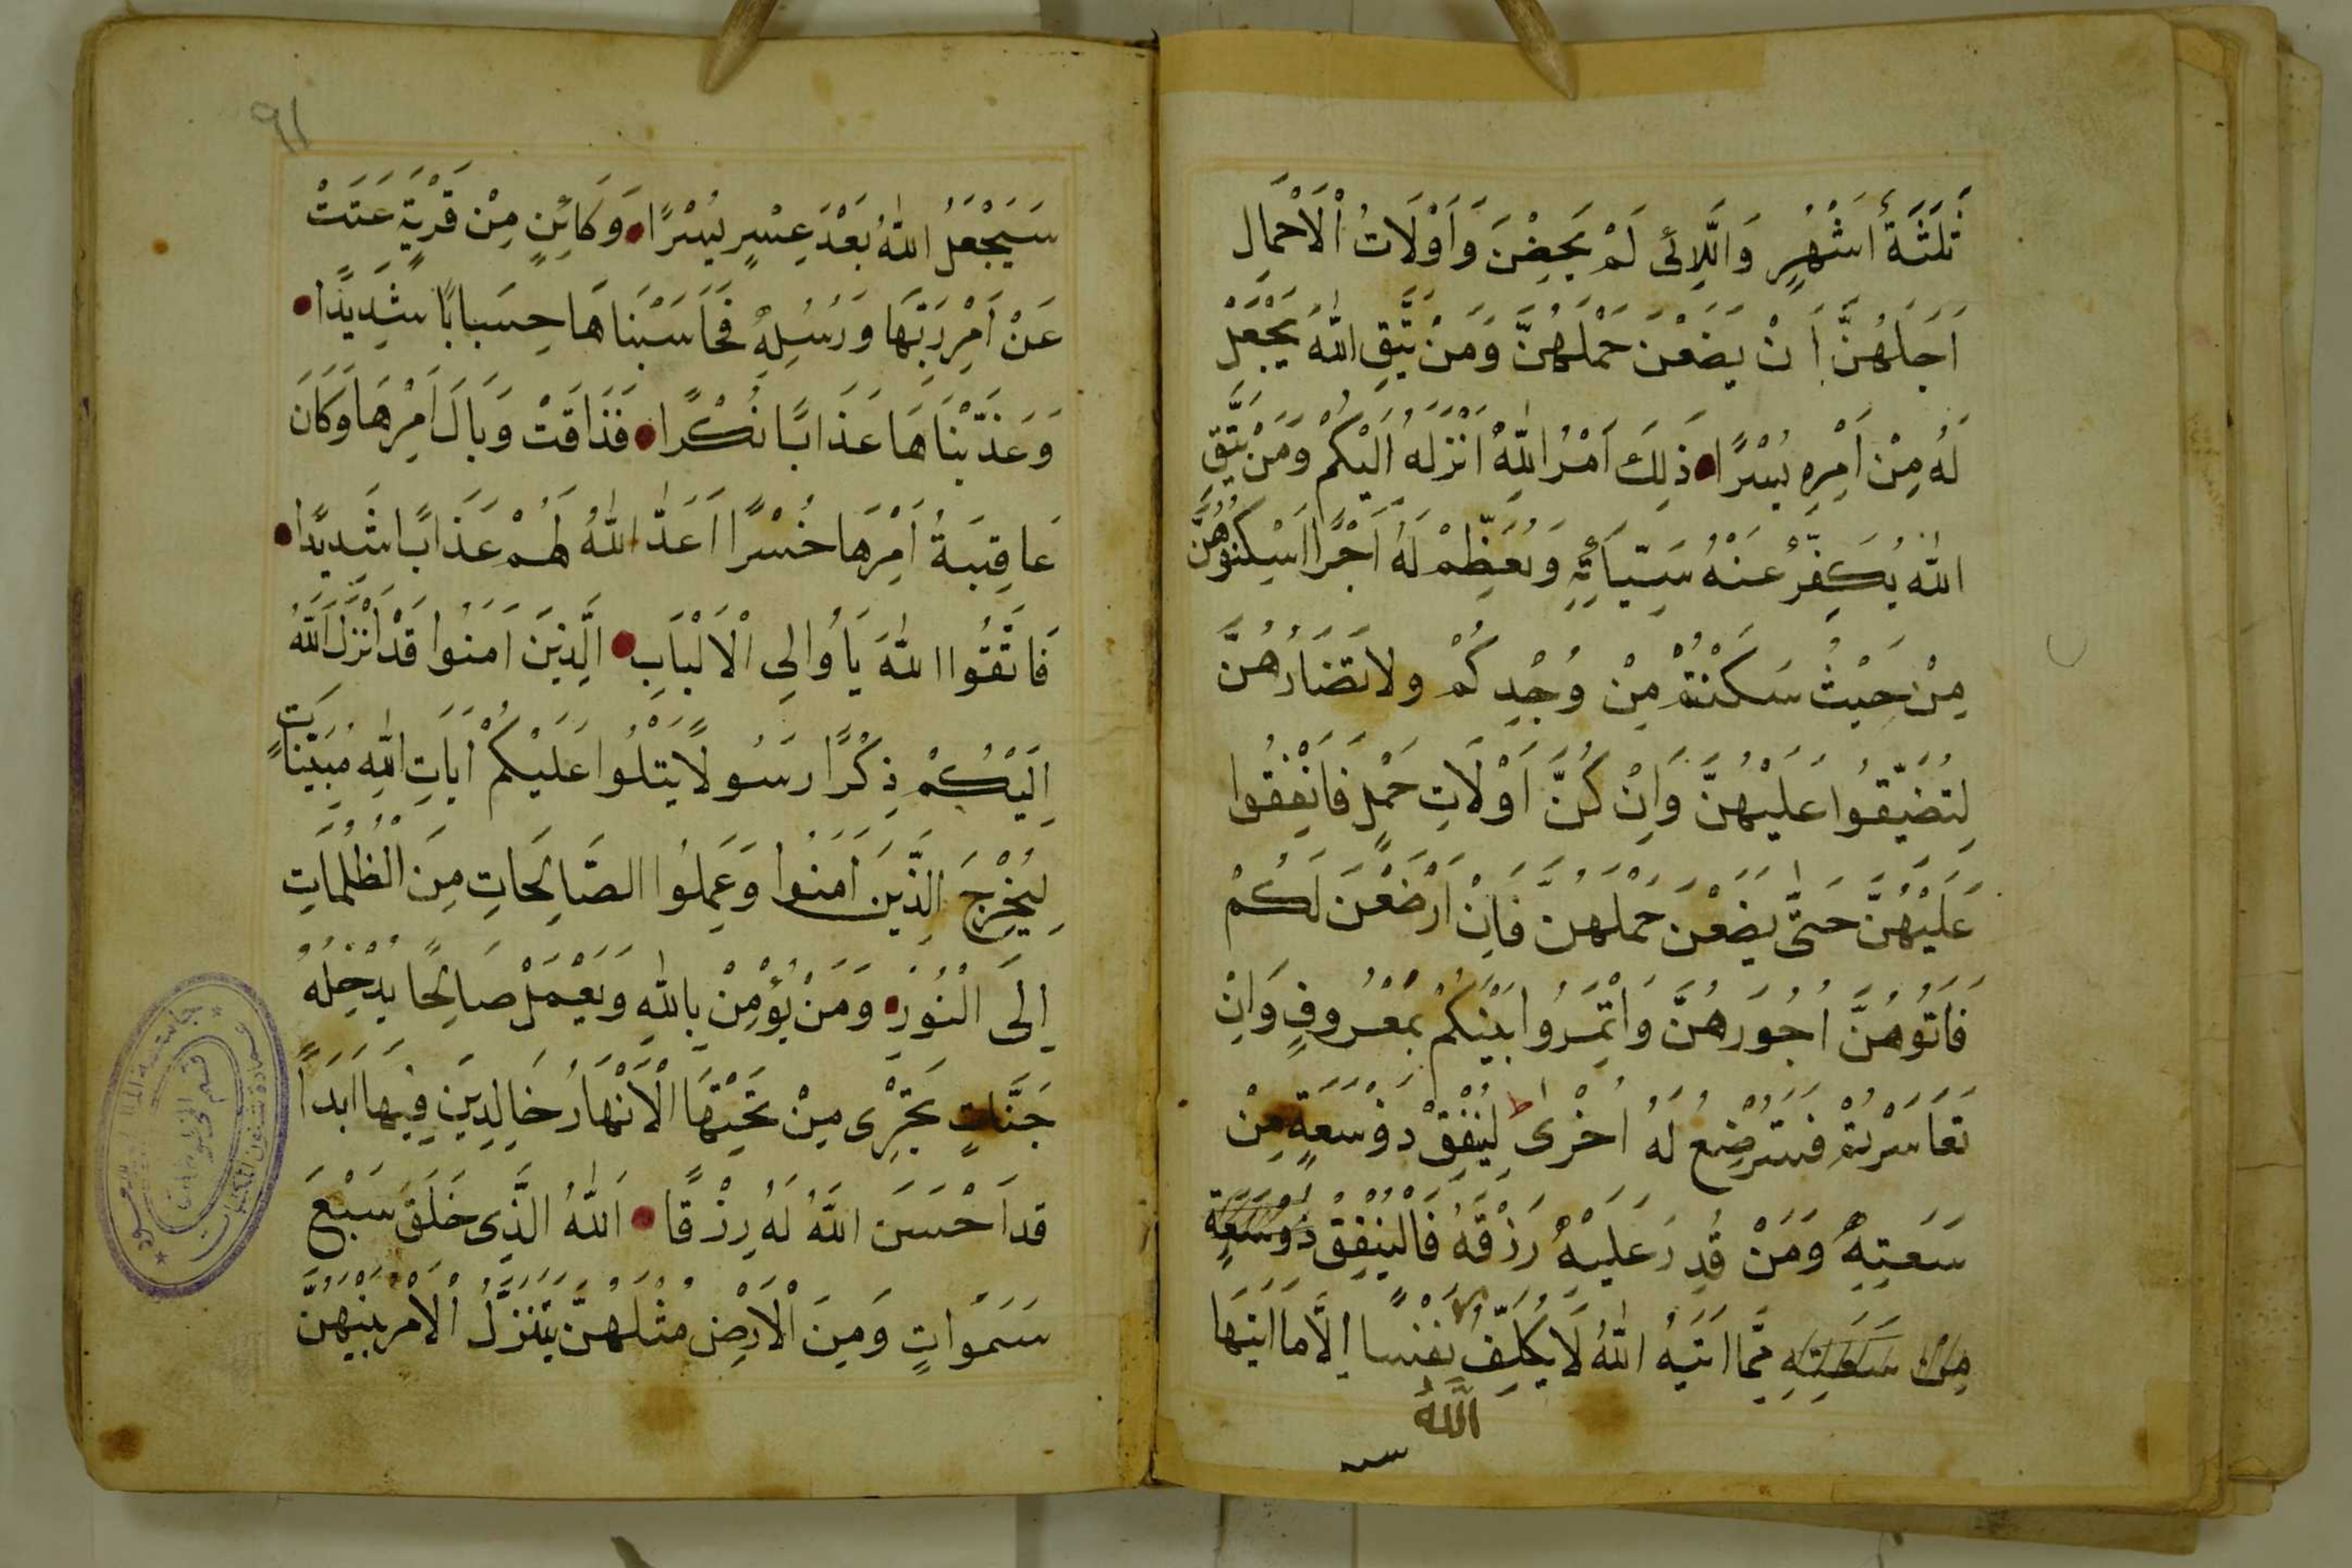 ثَلَثَةُ أَشْهُرٍ وَالَّلاِئى لَمْ يَحِضْنَ وَاَوْلَاتُ اْلَاحْمَالِ
اَجَلَهُنَّ اَنْ يَضَعْنَ حَمْلَهُنَّ وَمَنْ يَتَّقِ اللّٰهَ يَجْعَلْ
لَهُ مِنْ اَمْرِهِ يُسْرًا ذَلِكَ اَمْرُ اللّٰهِ اَنْزَلَهُ اِلَيْكُمْ وَمَنْ يَتَّقِ
اللّٰهَ يُكَفِّرْ عَنْهُ سَيِّيَأتِهِ وَيُعَظِّمْ لَهُ اَجْرًا اَسْكِنُوهُنَّ
مِنْ حَيْثُ سَكَنْتُمْ مِنْ وُجْدِكُمْ ولا تَضَارُهُنَّ
لِتُضَيِّقُوا عَلَيْهُنَّ وَاِنْ كُنَّ اَوْلَاتِ حَمْلٍ فَاَنْفِقُوا
عَلَيْهُنَّ حَتَّى يَضَعْنَ حَمْلَهُنَّ فَاِنْ اَرْضَعْنَ لَكُمْ
فَاَتُوهُنَّ اُجُورَهُنَّ وَاْتَمِرُوا بَيْنَكُمْ بِمَعْرُوفٍ وَاِنْ
تَعَاسَرْتُمْ فَسَتُرْضِعُ لَهُ اُخْرٰى لِيُنْفِقْ ذوْسَعَةٍ مِنْ
سَعَتِهِ وَمَنْ قُدِرَ عَلَيْهِ رِزْقَهُ فَالْيُنْفِقْ ذوْسَعَةٍ
مِنْ سَعَتِهِ مِمَّا اَتَيهُ اللّٰهُ لَا يُكَلِّفُ نَفْسًا اِلَّا مَا اَتَيهَا
اَللّٰهُ
٩١
سَيَجْعَلُ اللّٰهُ بَعْدَ عِسْرٍ يُسْرًا وَكَائِنٍ مِنْ قَرْيَةٍ عَتَتْ
عَنْ اَمْرِ رَبِّهَا وَرُسُلِهِ فَحَاسَبْنَاهَا حِسَبابًا شَدِيدًا
وَعَذَّبْنَاهَا عَذَابًا نُكْرًا فَذَاقَتْ وَبَالَ اَمْرِهَا وَكَانَ
عَاقِبَةُ اَمْرِهَا خُسْرًا اَعَدَّ اللّٰهُ لَهُمْ عَذَابًا شَدِيدًا
فَاتَّقُوا اللّٰهَ يَاُوالِى اْلَالْبَابِ الَّذِينَ اَمَنُوا قَدْ اَنْزَلَ اللّٰهُ
اِلَيْكُمْ ذِكْرًا رَسُولاً يَتْلُوا عَلَيْكُمْ اَيَاتِ اللّٰهِ مُبَيِّنَاتٍ
لِيُخْرِجَ الَّذِينَ اَمَنُوا وَعَمِلُوا الصَّالِحَاتِ مِنَ الْظُلُمَاتِ
اِلَى الْنُورِ وَمَنْ يُؤْمِنْ بِاللّٰهِ وَيَعْمَلْ صَالِحًا يُدْخِلْهُ
جَنَّاتٍ تَجْرِى مِنْ تَحْتِهَا الْاَنْهَارُ خَالِدِينَ فِيهَا اَبَدًا
قَد اَحْسَنَ اللّٰهُ لَهُ رِزْقًا اَللّٰهُ الَّذِى خَلَقَ سَبْعَ
سَمَوَاتٍ وَمِنَ الْاَرْضِ مِثْلَهُنَّ يَتَنَزَّلُ الْاَمْرُ بَيْنَهُنَّ
قسم المخطوطات